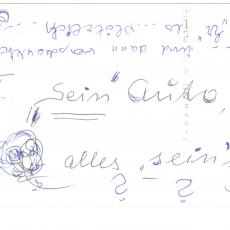 und dann
es plötzlich ....
Sein Auto,
alles „sein"
? ? ?